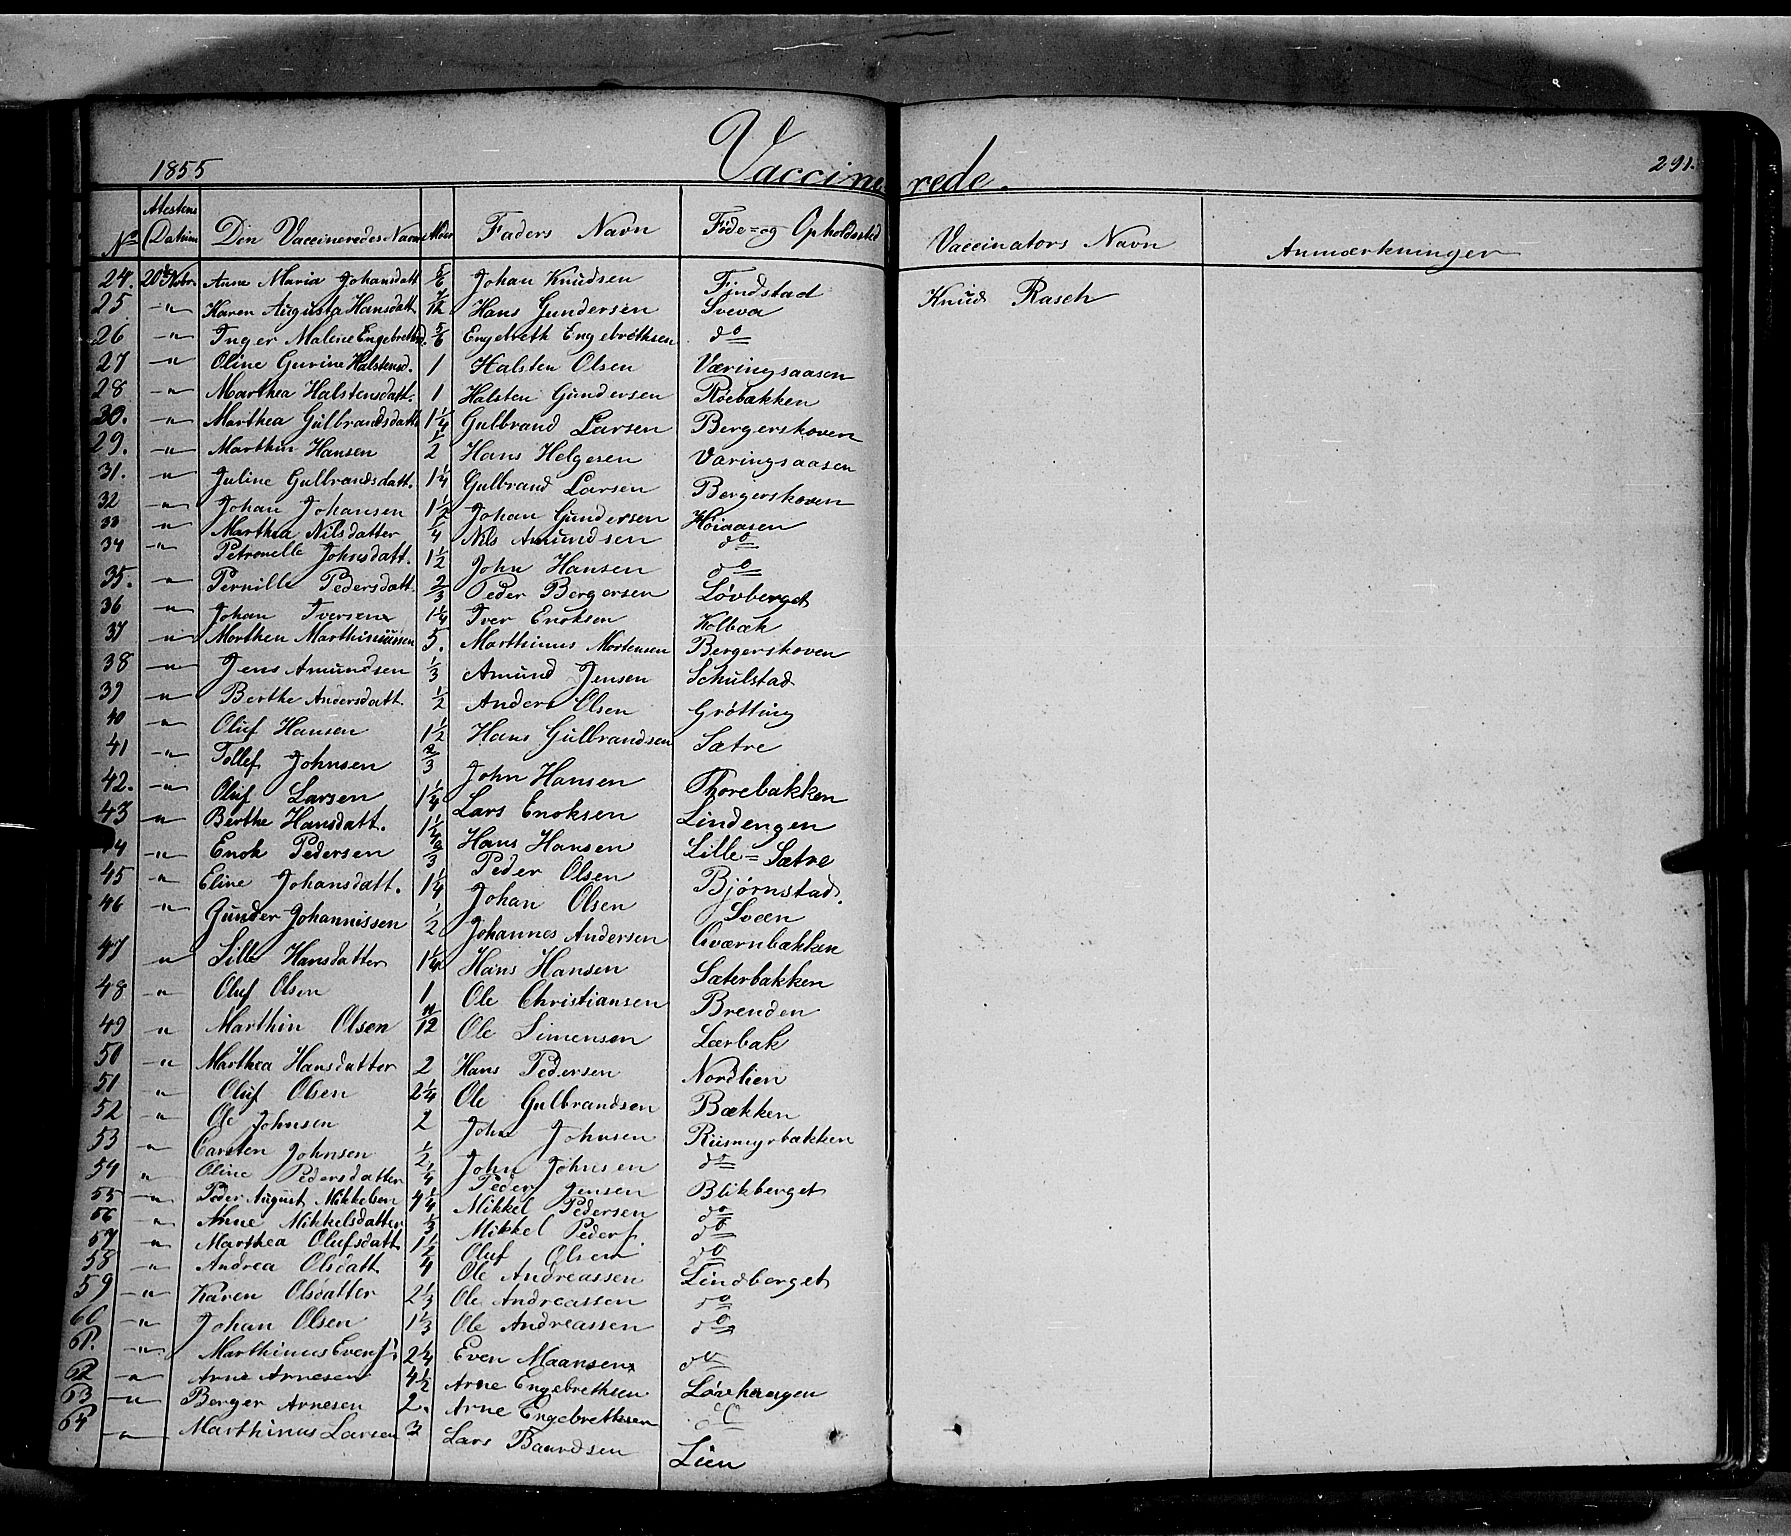 1855 Vaccinerede. 291.
No Attestens Datum Den Vaccineredes Navn Alder Faders Navn Føde- og Opholdssted Vaccinators Navn Anmærkninger
24. 20de Novbr. Anne Maria Johansdatt 5/6 Johan Knudsen Findstad Knud Rasch
25 -"- Karen Augusta Hansdatt 7/12 Hans Gundersen Sveva
26 -"- Inger Malene Engebrethsd. 5/6 Engebreth Engebrethsen do
27 -"- Oline Gurine Halstensd. 1 Halsten Olsen Væringsaasen
28 -"- Marthea Halstensdatt. 1 Halsten Gundersen Roebakken
30. -"- Marthea Gulbrandsdatt 1 1/4 Gulbrand Larsen Bergerskoven
29. -"- Marthin Hansen 1/2 Hans Helgesen Væringsaasen
31. -"- Juline Gulbrandsdatt. 1 1/4 Gulbrand Larsen Bergerskoven
32 -"- Johan Johansen 1 1/2 Johan Gundersen Høiaasen
33 -"- Marthea Nilsdatter 1/4 Nils Amundsen do
34 -"- Petronelle Johnsdatt. 1 1/2 John Hansen do
35. -"- Pernille Pedersdatt. 2/3 Peder Bergersen Løvberget
36 -"- Johan Iversen 1 1/4 Iver Enoksen Kolbæk
37 -"- Morthen Marthinussen 5. Marthinus Mortensen Bergerskoven
38 -"- Jens Amundsen 1/3 Amund Jensen Schulstad
39 -"- Berthe Andersdatt. 1/2 Anders Olsen Grøtting
40 -"- Oluf Hansen 1 1/2 Hans Gulbrandsen Sætre
41 -"- Tollef Johnsen 2/3 John Hansen Thorebakken
42. -"- Oluf Larsen 1 1/4 Lars Enoksen Lindengen
43 -"- Berthe Hansdatt. 1 1/4 Hans Hansen Lille=Sætre
44 -"- Enok Pedersen 2/3 Peder Olsen Bjørnstad.
45 -"- Eline Johansdatt. 1 1/4 Johan Olsen Sveen
46 -"- Gunder Johannissen 1/2 Johannes Andersen Qværnbækken
47 -"- Lille Hansdatter 1 1/4 Hans Hansen Sæterbakken
48 -"- Oluf Olsen 1 Ole Christiansen Brenden
49 -"- Marthin Olsen 11/12 Ole Simensen Lærbak
50 -"- Marthea Hansdatter 2 Hans Pedersen Nordlien
51 -"- Oluf Olsen 2 1/4 Ole Gulbrandsen Bækken
52 -"- Ole Johnsen 2 John Johnsen Riismyrbakken
53 -"- Carsten Johnsen 1/2 John Johnsen do
54 -"- Oline Pedersdatter 1/4 Peder Jensen Blikberget
55 -"- Peder August Mikkelsen 4 1/4 Mikkel Pedersen do
56 -"- Anne Mikkelsdatter 1/3 Mikkel Peders. do
57 -"- Marthea Olufsdatt 1 1/2 Oluf Olsen do
58 -"- Andrea Olsdatt 4 Ole Andreassen Lindberget
59 -"- Karen Olsdatter 2 1/3 Ole Andreassen do
60 -"- Johan Olsen 1 1/3 Ole Andreassen do
61. -"- Marthinus Evens. 2 1/4 Even Maansen do
62 -"- Arne Arnesen 4 1/2 Arne Engebrethsen Løvhaugen
63 -"- Berger Arnesen 2. Arne Engebrethsen do
64 -"- Marthinus Larsen 3 Lars Baardsen Lien